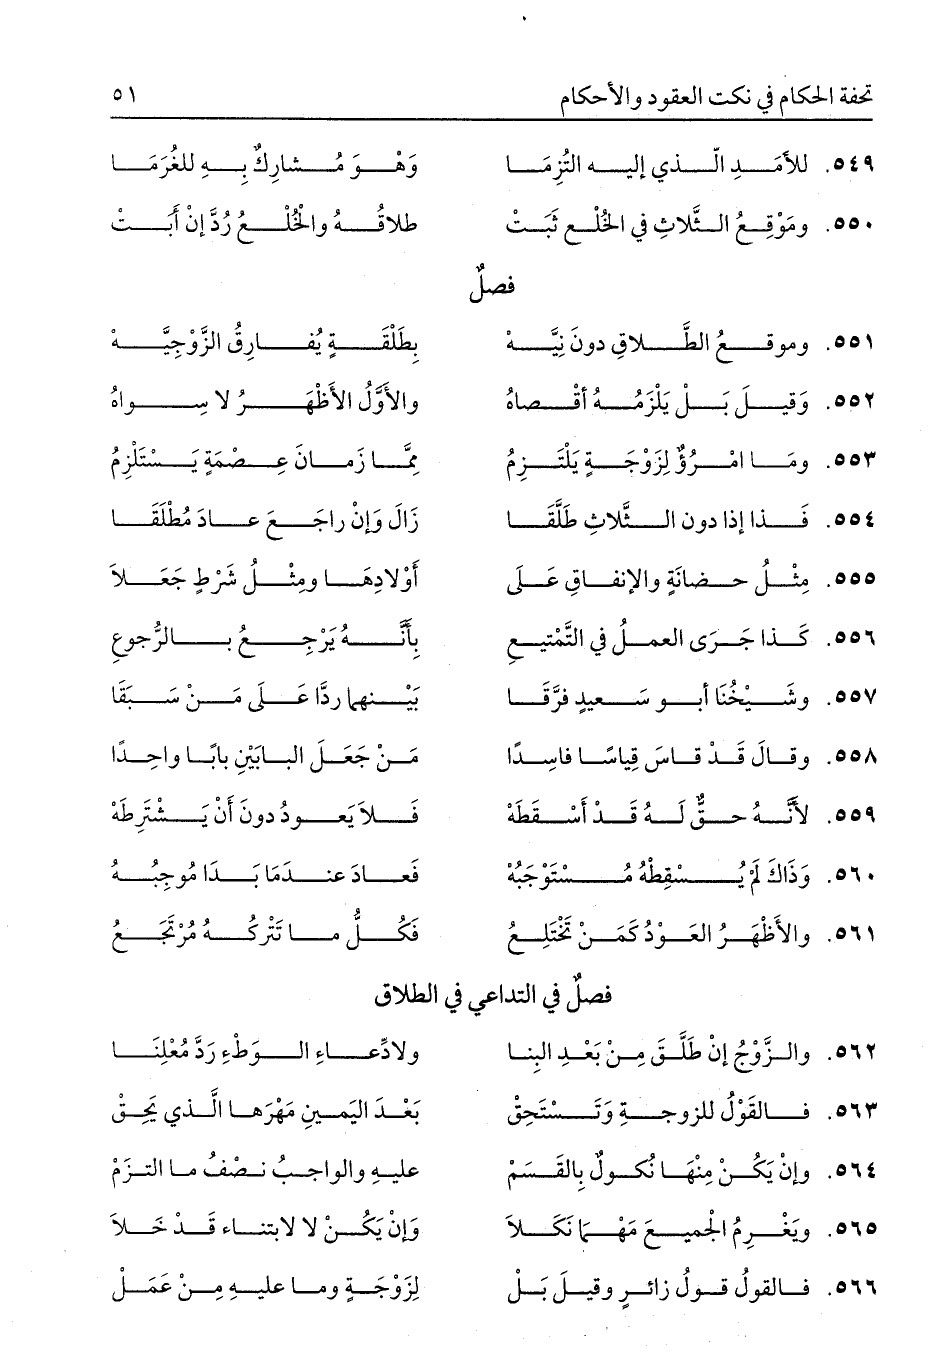 تحفة الحكام في نكت العقود والأحكام ٥١
٥٤٩. للأمَدِ الّذي إليه التُزِمَا وَهْوَ مُشارِكٌ بِهِ للغُرَمَا
٥٥٠. ومَوْقِعُ الثَّلاثِ في الخُلْعِ ثَبَتْ طلاقُهُ والخُلْعُ رُدَّ إنْ أبَتْ
فصلٌ
٥٥١. وموقعُ الطَّلاقِ دونَ نِيَّهْ بِطَلْقَةٍ يُفارِقُ الزَّوْجِيَّهْ
٥٥٢. وَقيلَ بَلْ يَلْزَمُهُ أقْصاهُ والأوَّلُ الأَظْهَرُ لا سِواهُ
٥٥٣. ومَا امْرُؤٌ لِزَوْجَةٍ يَلْتَزِمُ مِمَّا زَمانَ عِصْمَةٍ يَسْتَلْزِمُ
٥٥٤. فَذا إذا دون الثَّلاثِ طَلَّقَا زَالَ وَإنْ راجَعَ عادَ مُطْلَقَا
٥٥٥. مِثْلُ حضانَةٍ والإنفاقِ عَلَى أوْلادِها ومِثْلُ شَرْطٍ جَعَلاَ
٥٥٦. كَذا جَرَى العملُ في التَّمْتيعِ بأنَّهُ يَرْجِعُ بالرُّجوعِ
٥٥٧. وشَيْخُنَا أبو سَعيدٍ فرَّقَا بَيْنهما ردًّا عَلَى مَنْ سَبَقَا
٥٥٨. وقالَ قَدْ قاسَ قِياسًا فاسِدًا مَنْ جَعَلَ البابَيْنِ بابًا واحِدًا
٥٥٩. لأنَّهُ حقٌّ لَهُ قَدْ أسْقَطَهْ فَلاَ يَعودُ دونَ أنْ يَشْتَرِطَهْ
٥٦٠. وَذَاكَ لَمْ يُسْقِطْهُ مُسْتَوْجِبُهْ فَعادَ عندَمَا بَدَا مُوجِبُهُ
٥٦١. والأظْهَرُ العَوْدُ كَمَنْ تَخْتَلِعُ فَكُلُّ ما تَتْرُكُهُ مُرْتَجَعُ
فصلٌ في التداعي في الطلاق
٥٦٢. والزَّوْجُ إنْ طَلَّقَ مِنْ بَعْدِ البِنا ولادِّعاءِ الوَطْءِ رَدَّ مُعْلِنَا
٥٦٣. فالقَوْلُ للزوجةِ وَتَسْتَحِقْ بَعْدَ اليَمينِ مَهْرَها الَّذي يَحِقْ
٥٦٤. وإنْ يَكُنْ مِنْهَا نُكُولٌ بالقَسَمْ عليهِ والواجِبُ نصْفُ ما التزَمْ
٥٦٥. ويَغْرِمُ الجميعَ مَهْمَا نَكَلاَ وَإنْ يَكُنْ لا لابتناء قَدْ خَلاَ
٥٦٦. فالقولُ قولُ زائرٍ وقيلَ بَلْ لِزَوْجَةٍ وما عليهِ مِنْ عَمَلْ